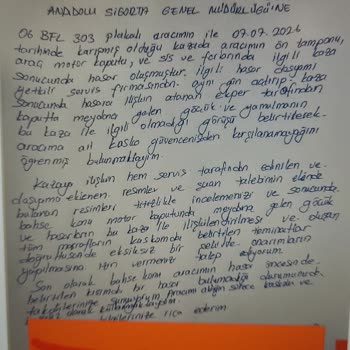 ANADOLU SİGORTA GENEL MÜDÜRLÜĞÜNE
06 BFL 303 plakalı aracımın ile 07.07.2026
tarihinde karışmış olduğu kazada aracımın ön tamponu,
araç motor kaputu, ve sis ve farlarında ilgili kaza
sonucunda hasar oluşmuştur. İlgili hasar dosyamı
yetkili servis firmasından aynı gün açılmış kaza
sonucunda hasara ilişkin atanan eksper tarafından
kaputta meydana gelen göçük ve yamulmanın
bu kaza ile ilgili olmadığı görüşü belirtilerek
aracıma ait kasko güvencesinden karşılanamayacağını
öğrenmiş bulunmaktayım.
Kazaya ilişkin hem servis tarafından edinilen ve
dosyama eklenen resimler ve şuan talebimin ekinde
bulunan resimleri titizlikle incelemenizi ve sonucunda
bahse konu motor kaputunda meydana gelen göçük
ve hasarların bu kaza ile ilişkilendirilmesi ve oluşan
tüm masrafların kaskomda belirtilen teminatlar
doğrultusunda eksiksiz bir şekilde onarımların
yapılmasına izin vermenizi talep ediyorum.
Son olarak bahse konu aracımın hasar öncesinde
belirtilen kısımda bir hasar bulunmadığı
takdirlerinize sunuyorum
rica ederim